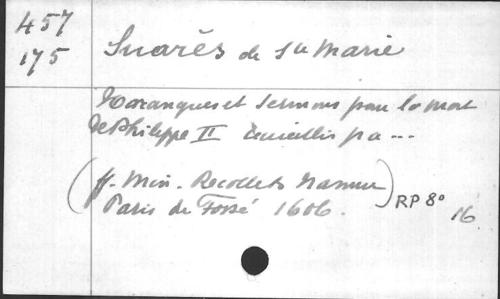 457
175
Suarès de Ste Marie
Harangues et sermons pour la mort
de Philippe II recueillis pa ...
(ff. Min. Recollets Namur)
Paris de Fossé 1606.
RP 8°
16